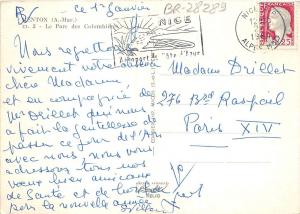 MENTON (A.-Mar.)
11. 2 - Le Parc des Colombières
ce 1er Janvier
BR-28289
NICE
NICE
ALPES
0,25
Nous regrettons
vivement votre
chère Madame
et en compagnie de
Mr Drillet qui nous
a fait la gentillesse de
passer ce jour de l'An
avec nous, nous vous
adressons tous nos
vœux bien amicaux
de Santé et de
pour la nouvelle année
Madame Drillet
276 Bd Raspail
Paris
XIV